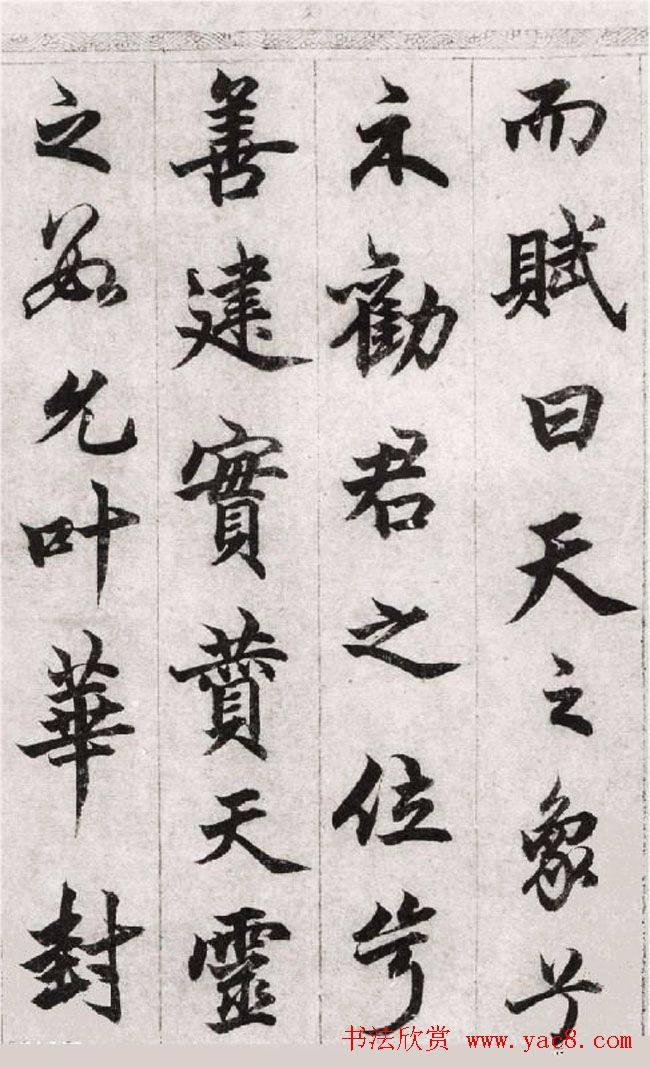 而賦曰天之象兮
示勸君之位兮
善建實蕡天靈
之允叶華封
书法欣赏 www.yac8.com